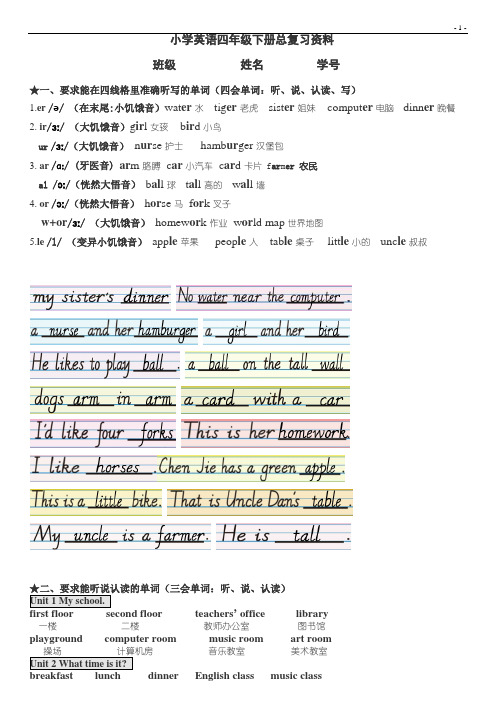 - 1 -
小学英语四年级下册总复习资料
班级 姓名 学号
★一、要求能在四线格里准确听写的单词（四会单词：听、说、认读、写）
1.er /ə/ （在末尾:小饥饿音）water 水 tiger 老虎 sister 姐妹 computer 电脑 dinner 晚餐
2. ir/ɜː/ （大饥饿音）girl 女孩 bird 小鸟
ur /ɜː/（大饥饿音） nurse 护士 hamburger 汉堡包
3. ar /ɑː/ (牙医音) arm 胳膊 car 小汽车 card 卡片 farmer 农民
al /ɔː/（恍然大悟音） ball 球 tall 高的 wall 墙
4. or /ɔː/（恍然大悟音） horse 马 fork 叉子
w+or/ɜː/ （大饥饿音） homework 作业 world map 世界地图
5.le /l/ （变异小饥饿音） apple 苹果 people 人 table 桌子 little 小的 uncle 叔叔
my sister's dinner No water near the computer .
a nurse and her hamburger a girl and her bird
He likes to play ball . a ball on the tall wall
dogs arm in arm a card with a car
I'd like four forks This is her homework.
I like horses .Chen Jie has a green apple .
This is a little bike. That is Uncle Dan's table .
My uncle is a farmer. He is tall .
★二、要求能听说认读的单词（三会单词：听、说、认读）
Unit 1 My school.
first floor second floor teachers’ office library
一楼 二楼 教师办公室 图书馆
playground computer room music room art room
操场 计算机房 音乐教室 美术教室
Unit 2 What time is it?
breakfast lunch dinner English class music class